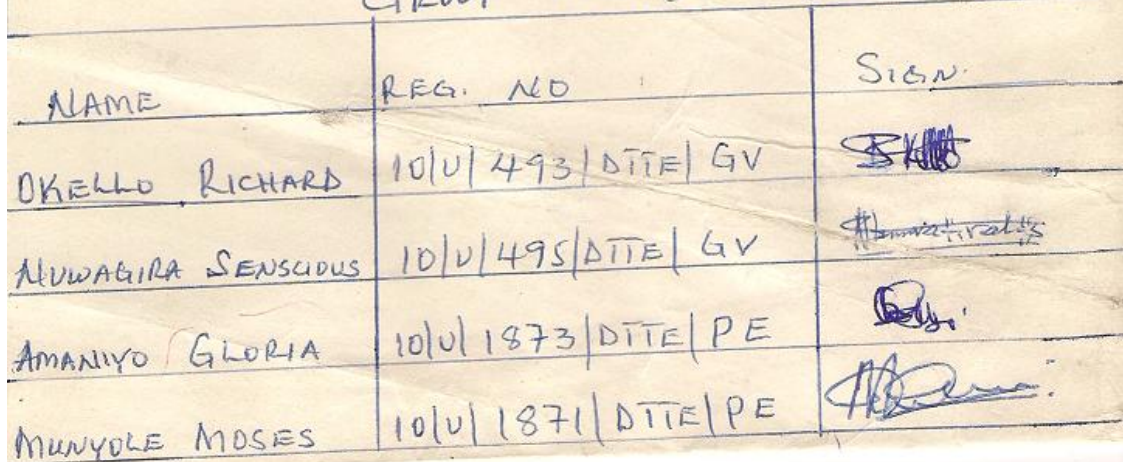 NAME REG. NO SIGN.
OKELLO RICHARD 10/U/493/DTTE/GV
NUWAGIRA SENSCIOUS 10/U/495/DTTE/GV
AMANIYO GLORIA 10/U/1873/DTTE/PE
MUNYOLE MOSES 10/U/1871/DTTE/PE